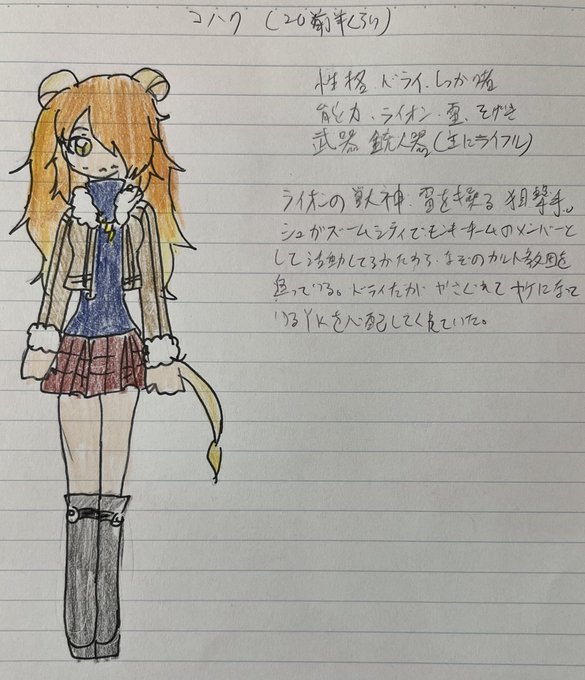 コハク (20前半くらい)
性格、ドライ、しっかり者
能力、ライオン、雷、そげき
武器 銃火器(主にライフル)
ライオンの獣神、雷を操る狙撃手。
シュガズームシティでモンキーチームのメンバーと
して活動してるかたわら、なぞのカルト教団を
追っている。ドライだが やさぐれて ヤケになって
いるYKを心配してくれていた。